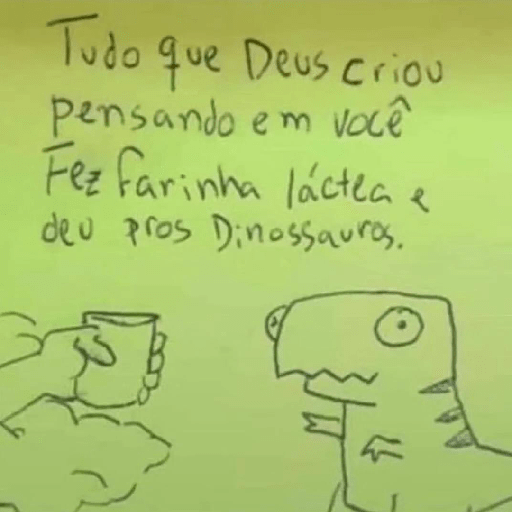 Tudo que Deus criou
pensando em você
Fez farinha láctea e
deu pros Dinossauros.